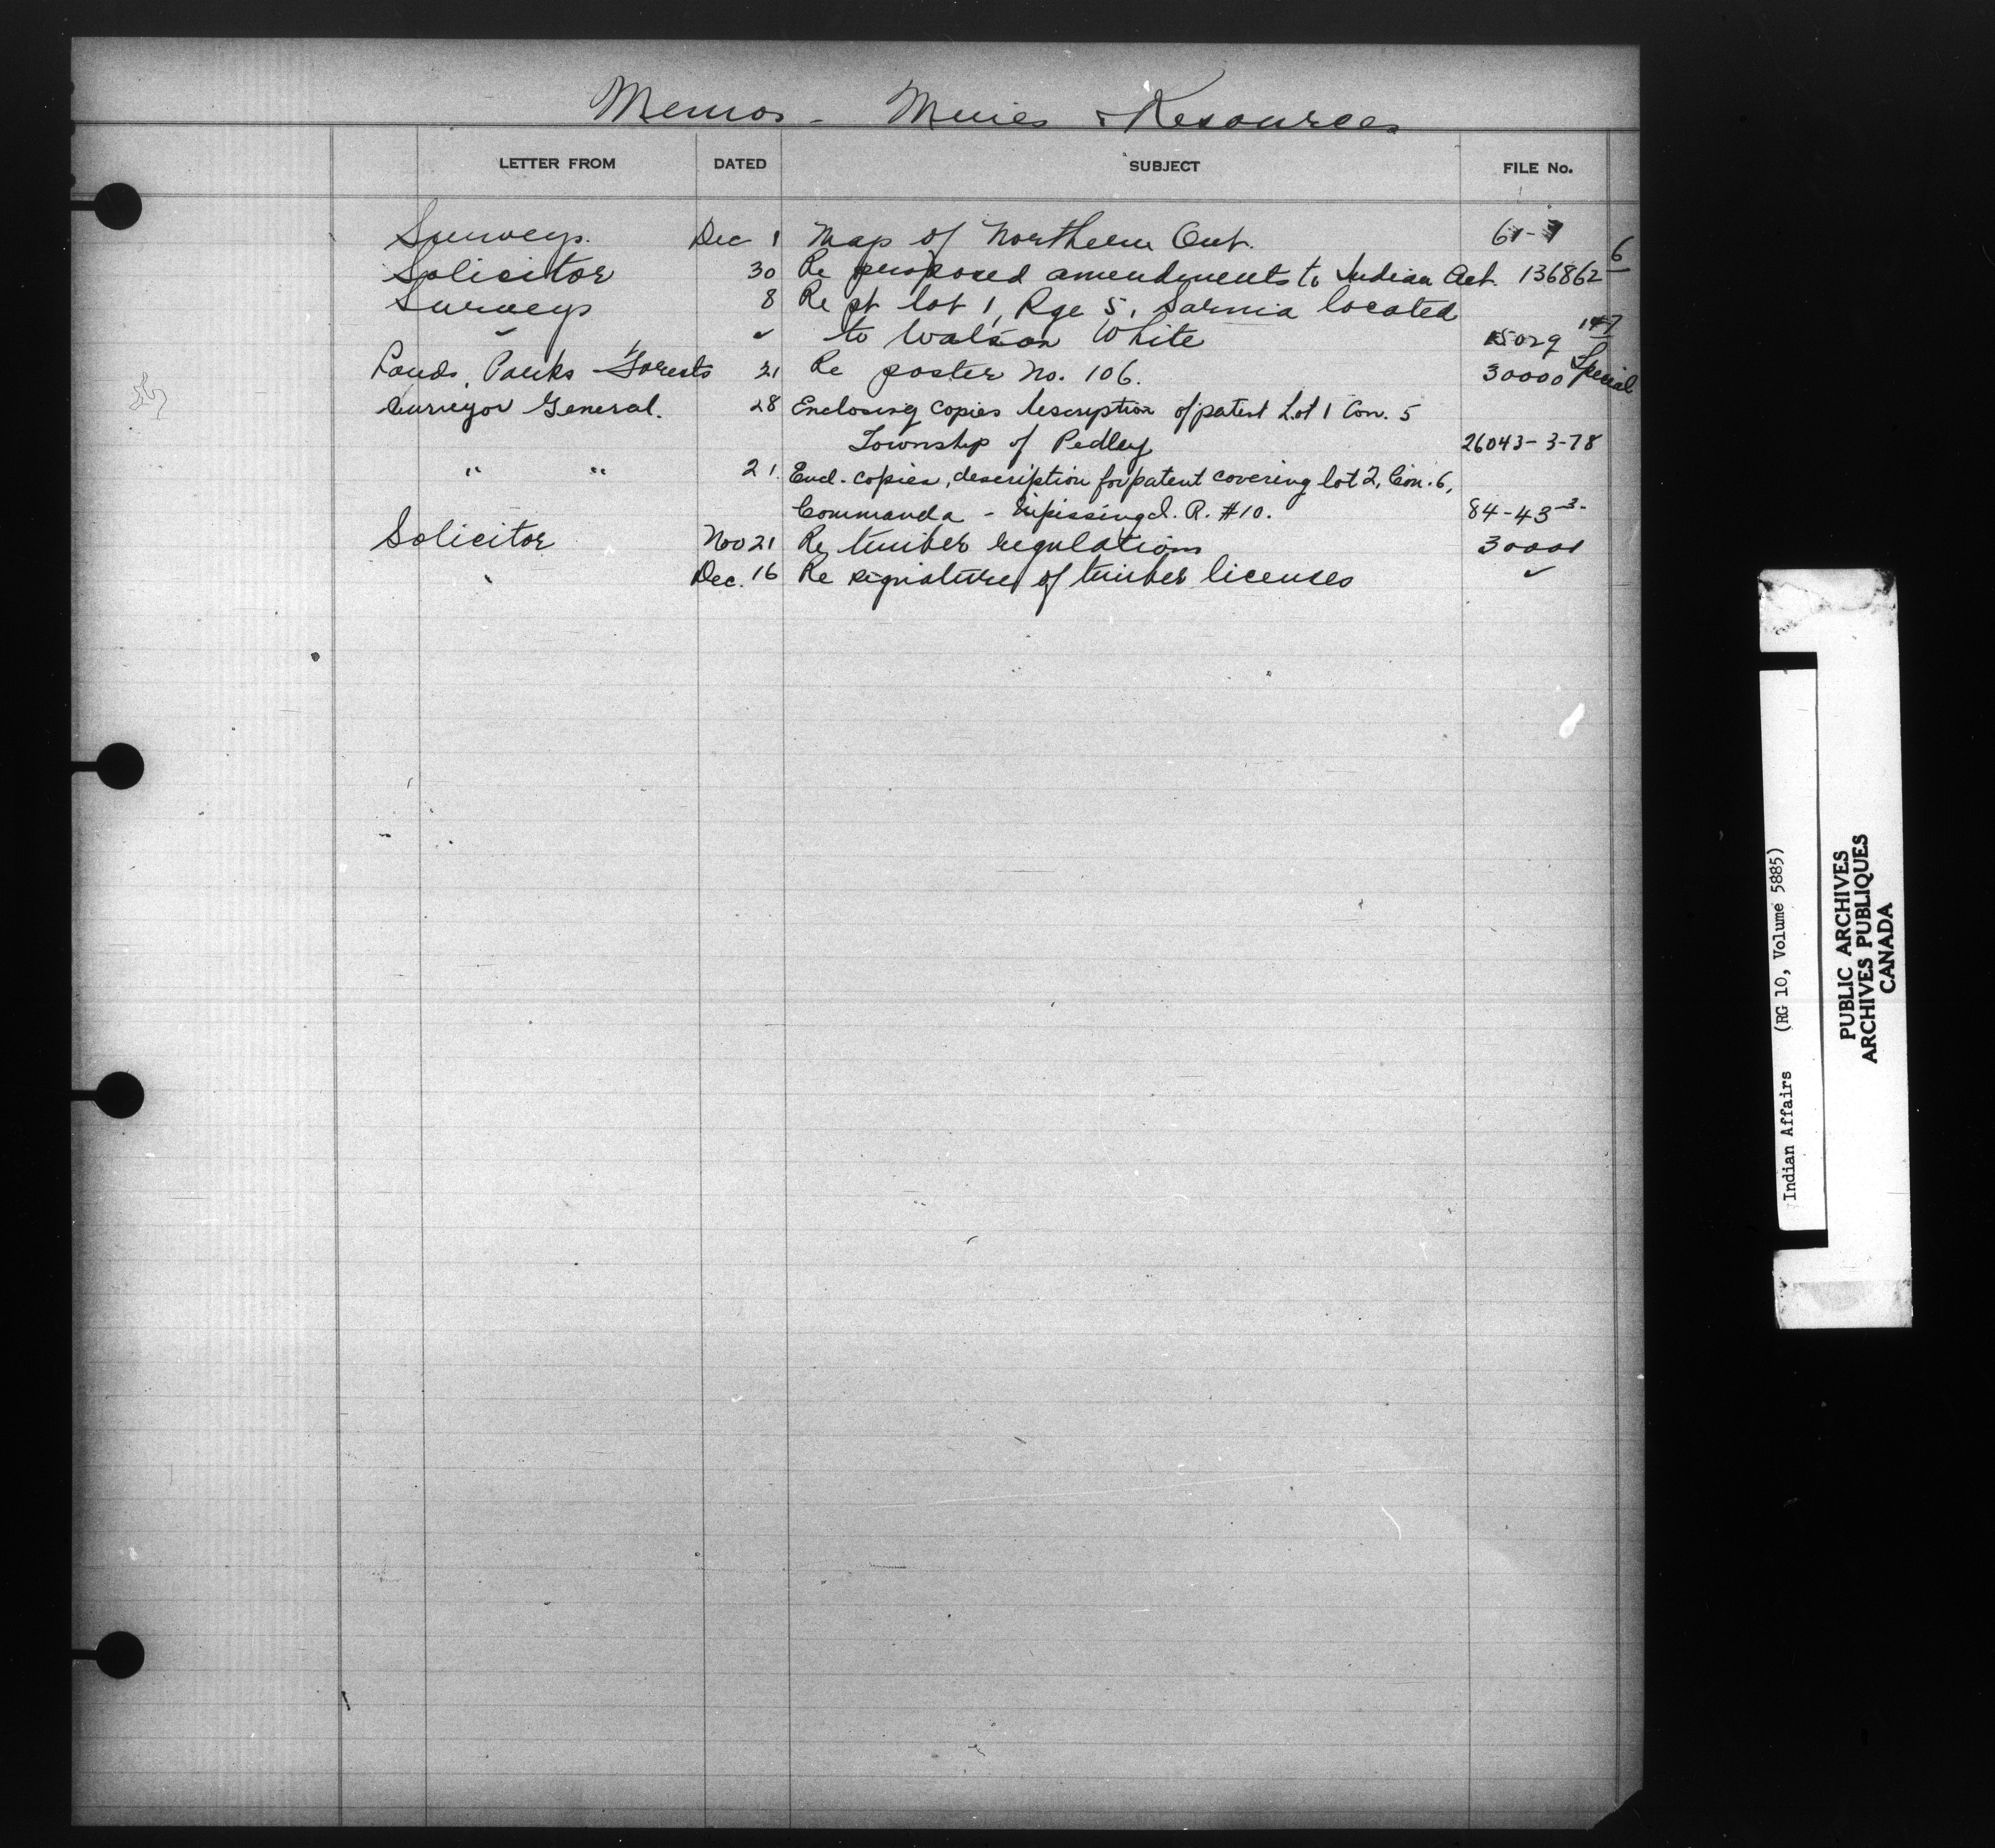 Memos - Mines & Resources
LETTER FROM DATED SUBJECT FILE No.
Surveys. Dec 1 Map of Northern Ont. 61-
Solicitor 30 Re proposed amendments to Indian Act. 136862-6
Surveys 8 Re pt lot 1, Rge 5, Sarnia located
✓ ✓ to Watson White 15029 147
Lands, Parks & Forests 21 Re poster No. 106. 30000 Special
Surveyor General. 28 Enclosing copies description of patent Lot 1 Con. 5
Township of Pedley 26043-3-78
" " 21. Encl. copies, description for patent covering lot 2, Con. 6,
Commanda - Nipissing I. R. #10. 84-43-3-
Solicitor Nov 21 Re timber regulations 30001
Dec. 16 Re signature of timber licenses ✓
Indian Affairs (RG 10, Volume 5885)
PUBLIC ARCHIVES
ARCHIVES PUBLIQUES
CANADA